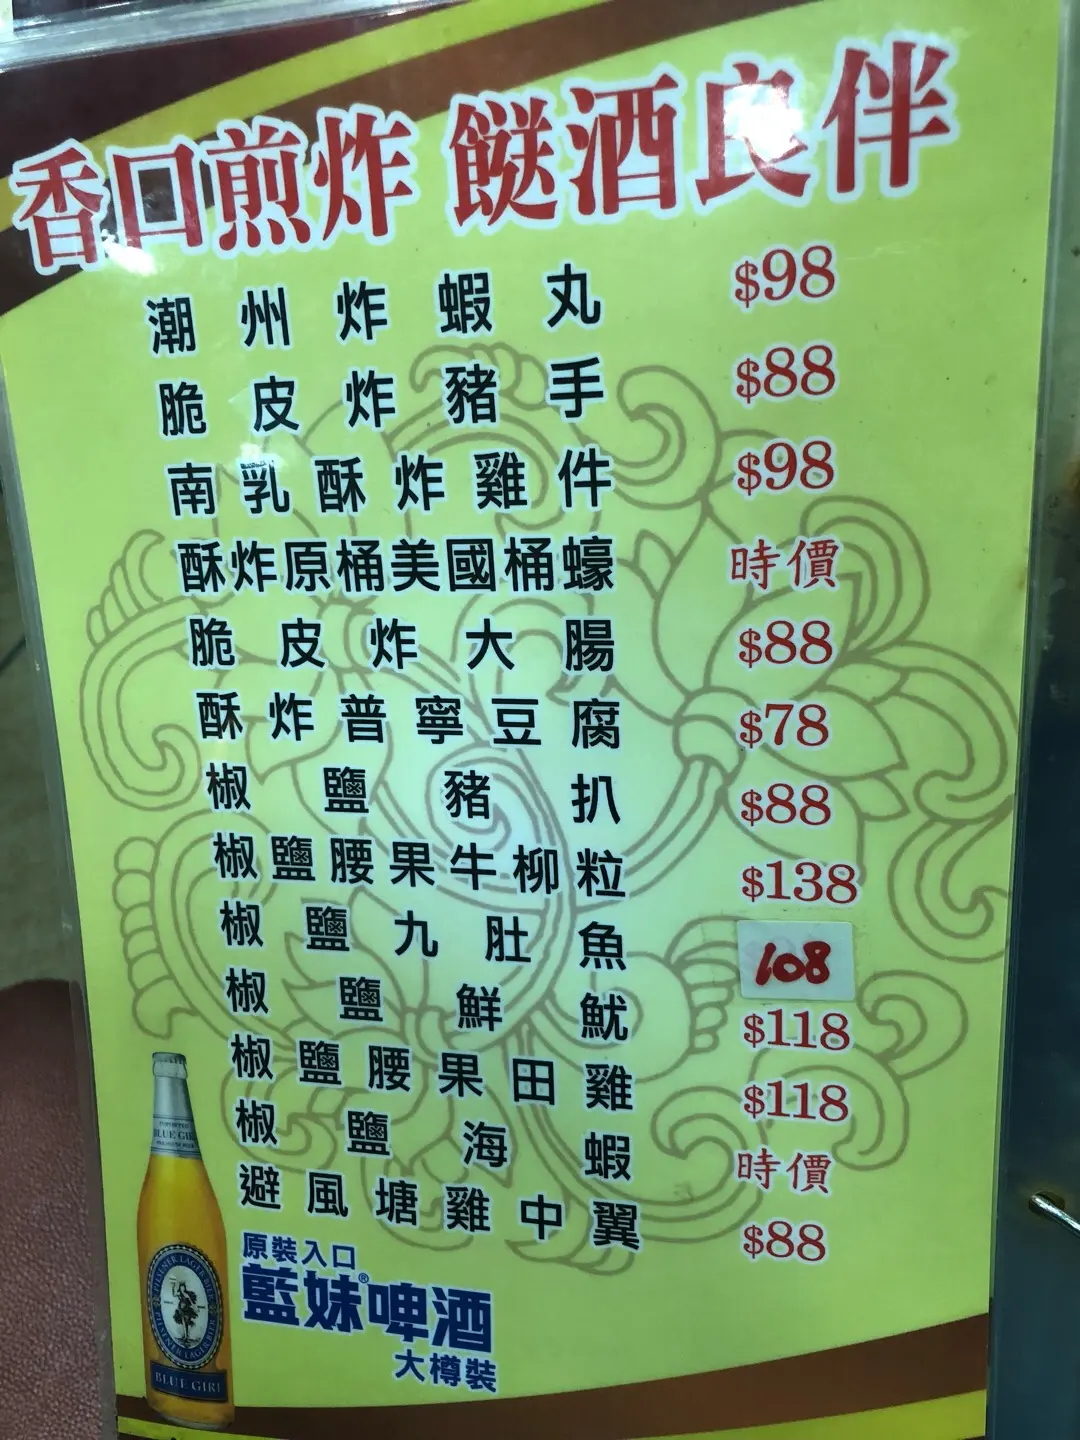 香口煎炸 餸酒良伴
潮州炸蝦丸 $98
脆皮炸豬手 $88
南乳酥炸雞件 $98
酥炸原桶美國桶蠔 時價
脆皮炸大腸 $88
酥炸普寧豆腐 $78
椒鹽豬扒 $88
椒鹽腰果牛柳粒 $138
椒鹽九肚魚 108
椒鹽鮮魷 $118
椒鹽腰果田雞 $118
椒鹽海蝦 時價
避風塘雞中翼 $88
原裝入口
藍妹®啤酒
大樽裝
IMPORTED
BLUE GIRL
PILSENER LAGER BEER
PILSENER LAGER BIER
BLUE GIRL